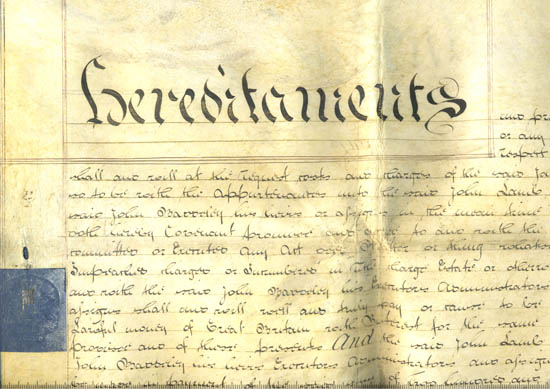 Hereditaments
and pr
or any
respect
shall and will at the request costs and charges of the said Joh
so to be with the Appurtenances unto the said John Lamb
said John Bawdley his heirs or assigns in the mean time
doth hereby Covenant promise and agree to and with the
committed or Executed any Act or thing
Impeached charged or Incumbered in Title charge Estate or otherw
and with the said John Bawdley his Executors Administrators
assigns shall and will well and truly pay or cause to be
Lawful money of Great Britain with Interest for the same
proviso and of these presents And the said John Lamb
John Bawdley his heirs Executors Administrators and assigns
be made in payment of the said of one hundred and